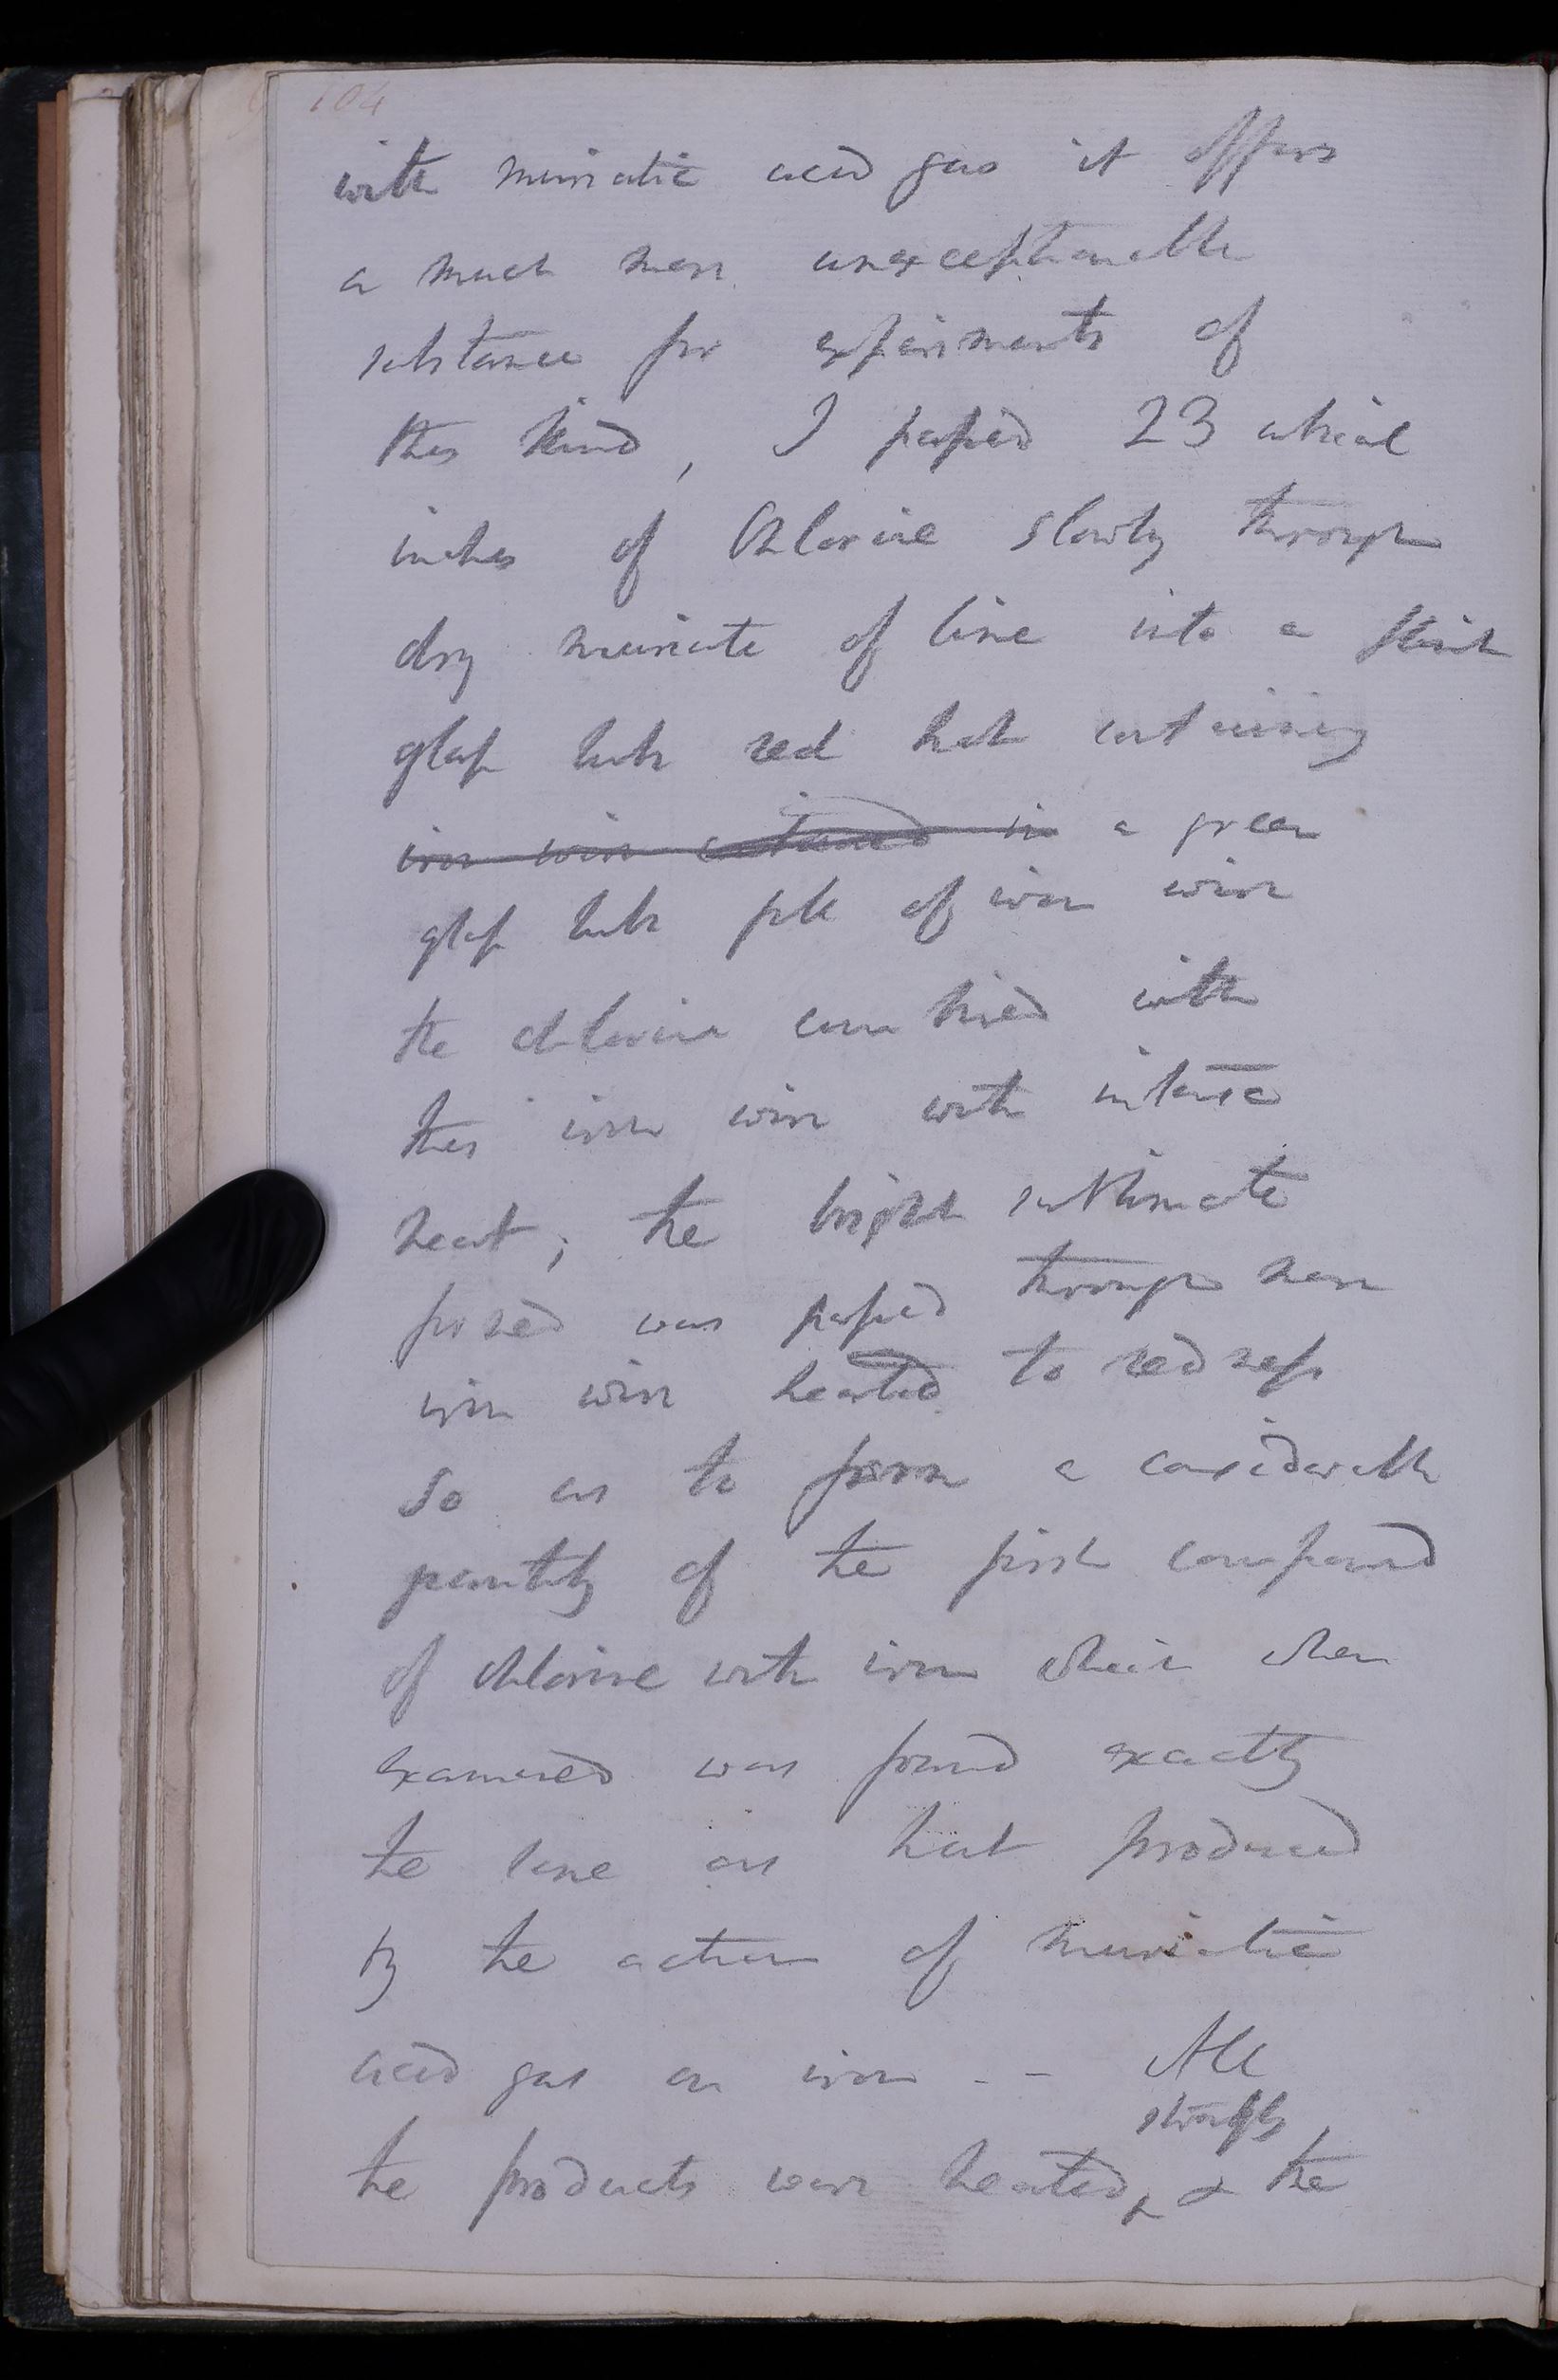 104
with muriatic acid gas it offers
a much more unexceptionable
substance for experiments of
this kind, I passed 23 cubical
inches of Chlorine slowly through
dry muriate of lime into a flint
glass tube red hot containing
iron wire contained in a green
glass tube full of iron wire
the chlorine combined with
this iron wire with intense
heat; the bright sublimate
formed was passed through more
iron wire heated to redness
so as to form a considerable
quantity of the first compound
of chlorine with iron which when
examined was found exactly
the same as that produced
by the action of muriatic
acid gas on iron -- All
strongly
the products were heated, & the